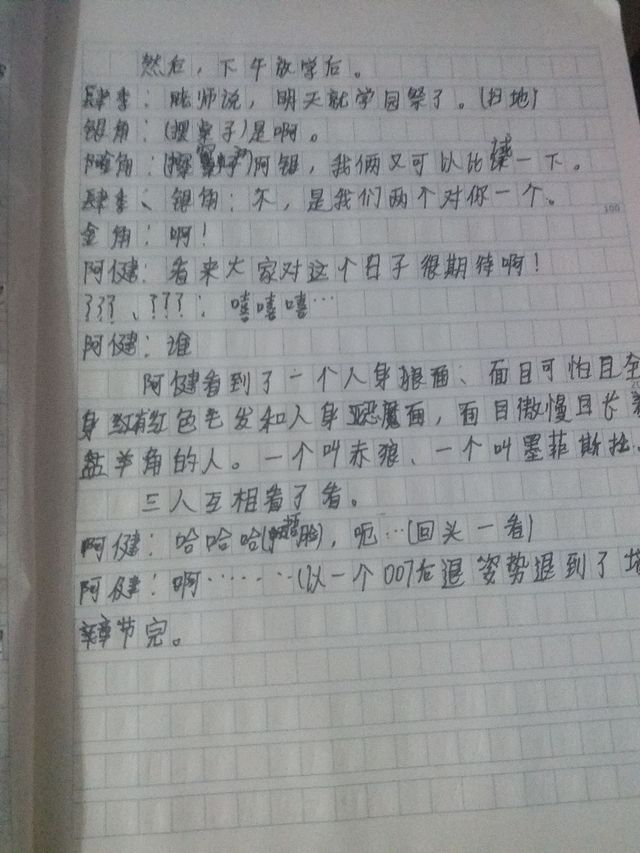 然后，下午放学后。
肆季：陇师说，明天就学园祭了。(扫地)
银角：(摆桌子)是啊。
角：阿银，我俩又可以比一下。
肆季、银角：不，是我们两个对你一个。
100
金角：啊！
阿健：看来大家对这个日子很期待啊！
???、???：嘻嘻嘻…
阿健：谁
阿健看到了一个人身狼面、面目可怕且全
身红色毛发和人身恶魔面，面目傲慢且长着
盘羊角的人。一个叫赤狼、一个叫墨菲斯拉
三人互相看了看。
阿健：哈哈哈(捂脸)，呃…(回头一看)
阿健：啊……(以一个007后退姿势退到了墙
章节完。